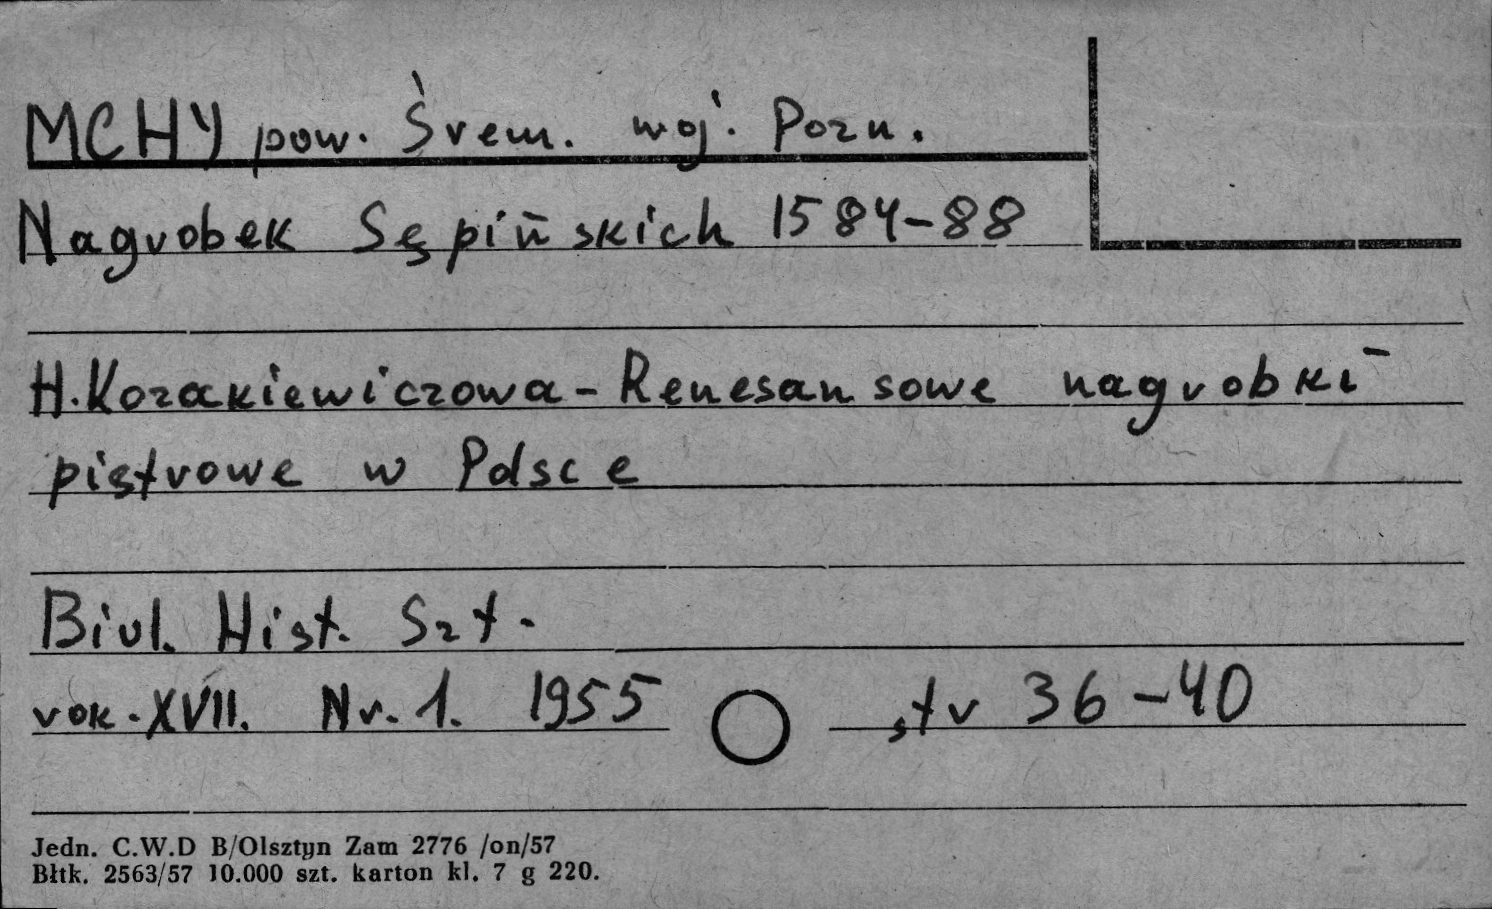 MCHY pow. Śrem. woj. Pozn.
Nagrobek Sępińskich 1584-88
H. Kozakiewiczowa - Renesansowe nagrobki
piętrowe w Polsce
Biul. Hist. Szt.
rok. XVII. Nr. 1. 1955 str 36-40
Jedn. C.W.D B/Olsztyn Zam 2776 /on/57
Błtk. 2563/57 10.000 szt. karton kl. 7 g 220.